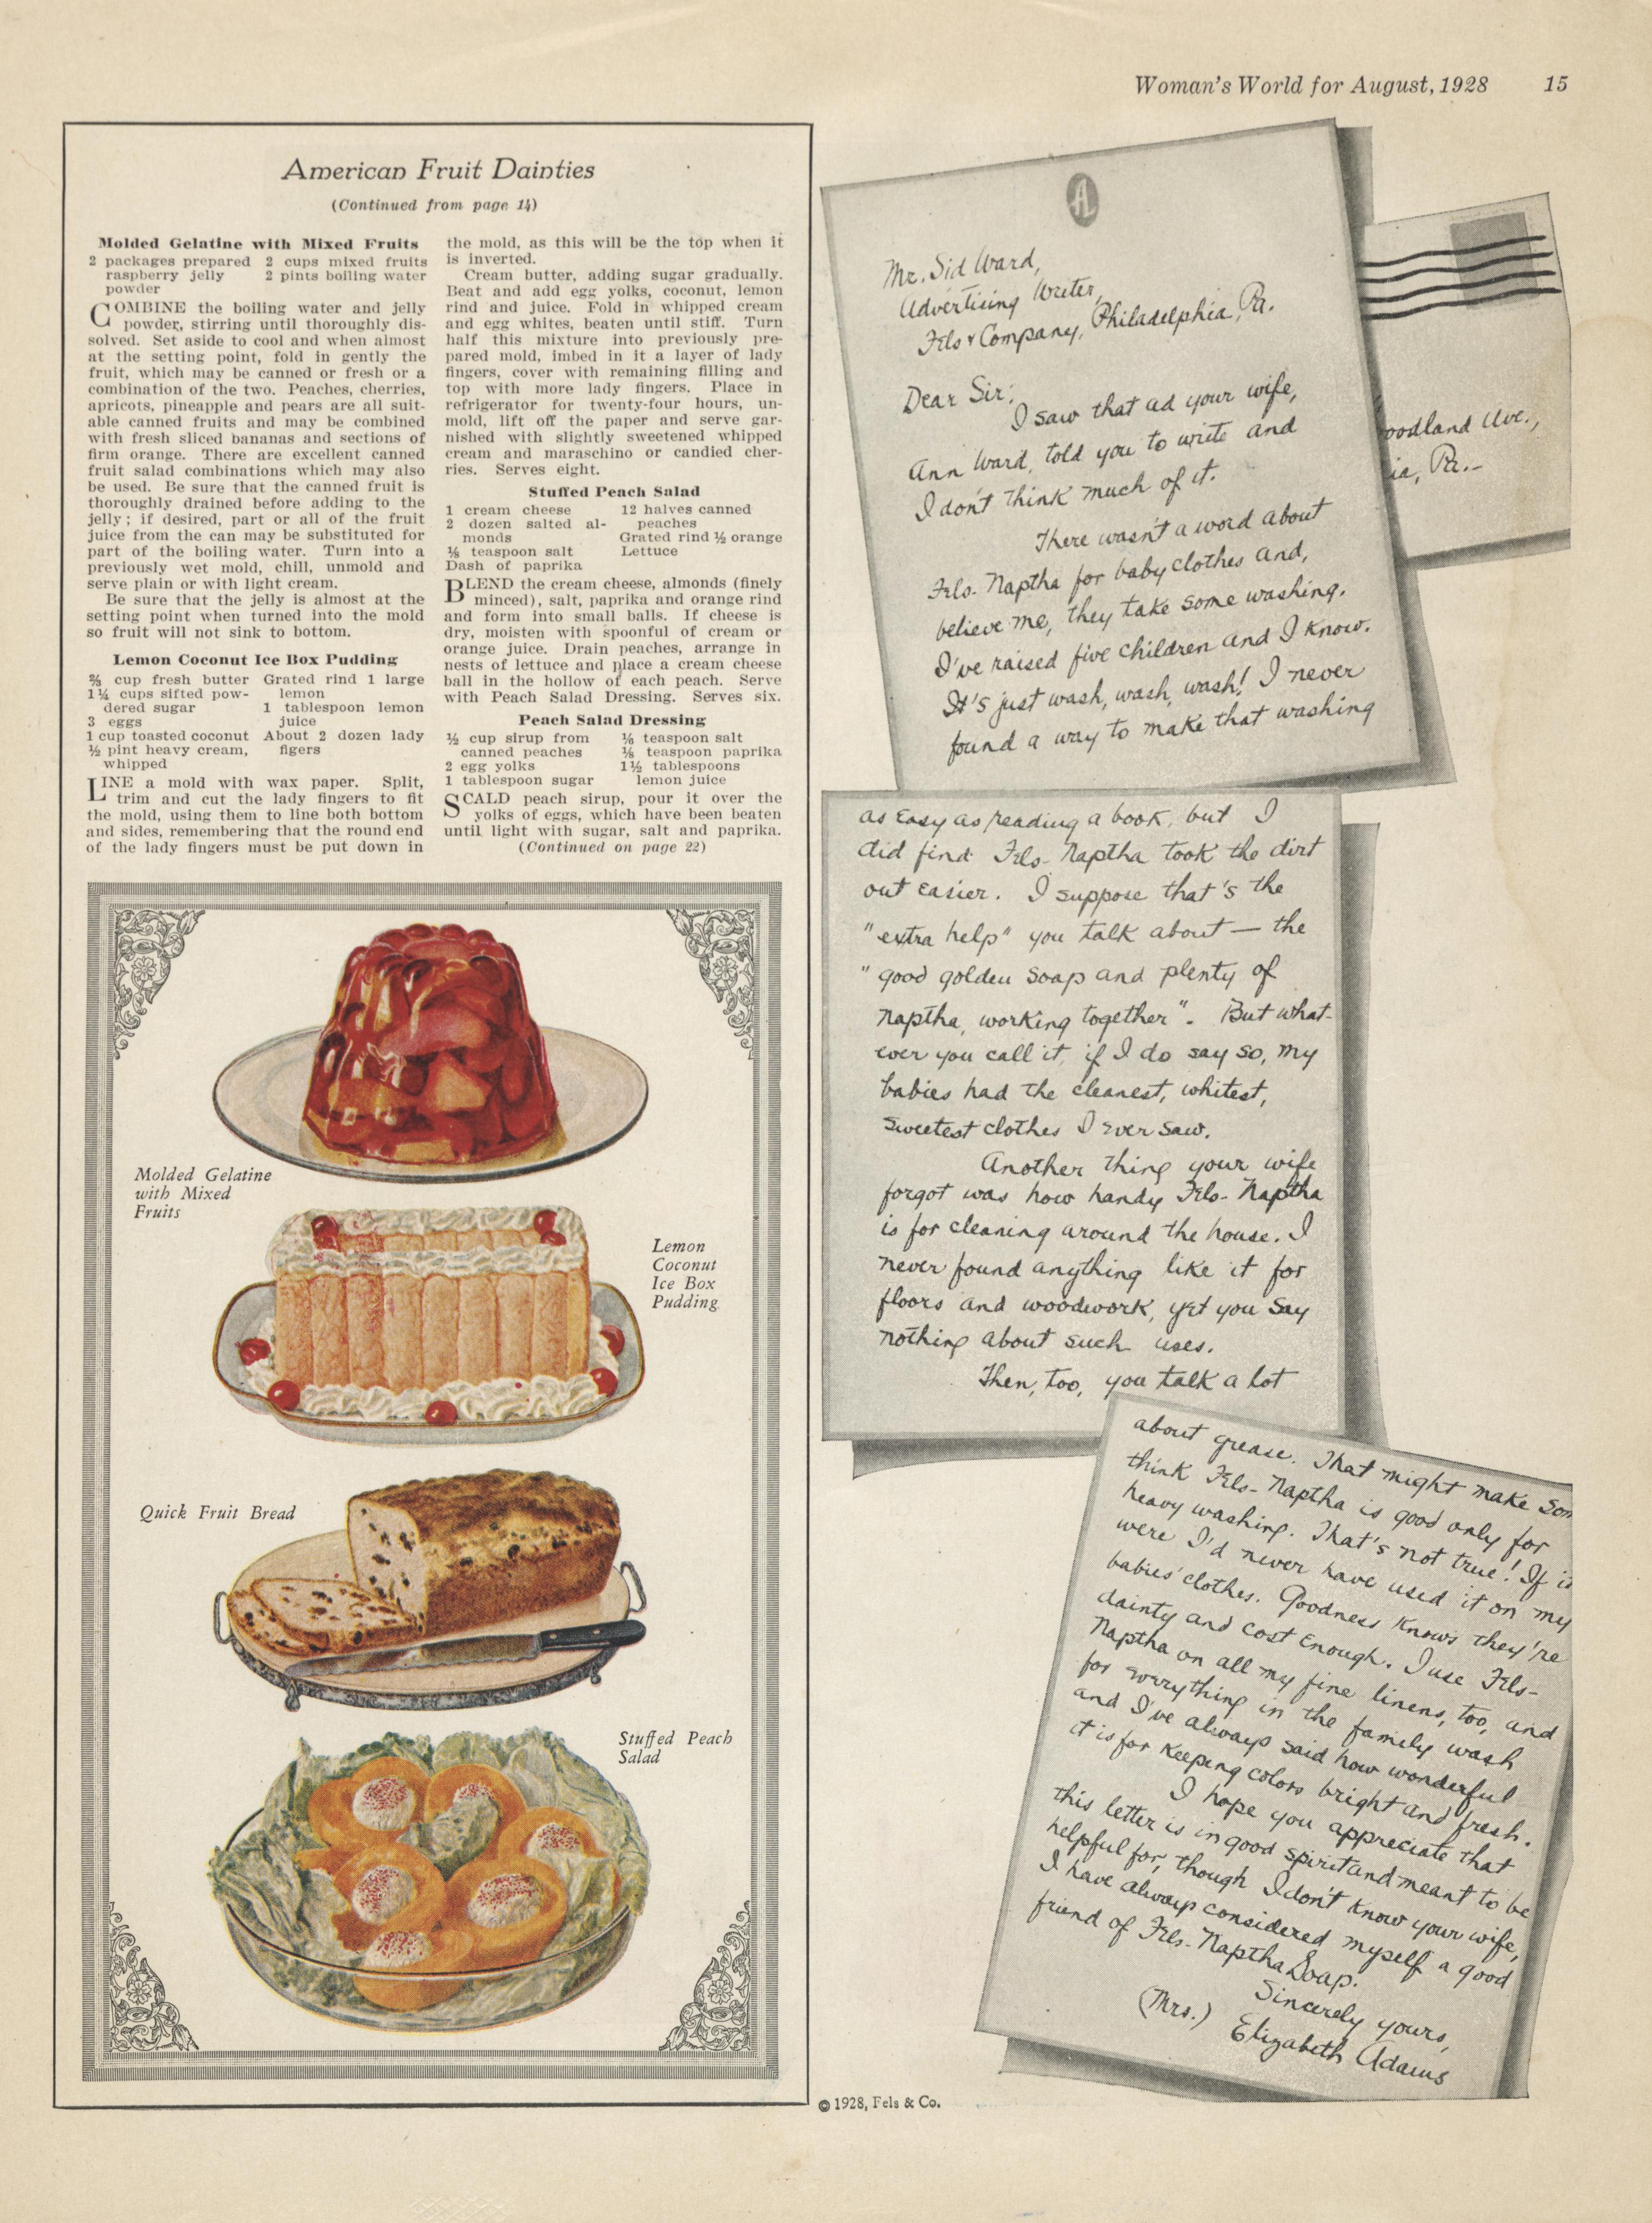 Woman's World for August, 1928 15
American Fruit Dainties
(Continued from page 14)
Molded Gelatine with Mixed Fruits
2 packages prepared raspberry jelly powder
2 cups mixed fruits
2 pints boiling water
COMBINE the boiling water and jelly
powder, stirring until thoroughly dis-
solved. Set aside to cool and when almost
at the setting point, fold in gently the
fruit, which may be canned or fresh or a
combination of the two. Peaches, cherries,
apricots, pineapple and pears are all suit-
able canned fruits and may be combined
with fresh sliced bananas and sections of
firm orange. There are excellent canned
fruit salad combinations which may also
be used. Be sure that the canned fruit is
thoroughly drained before adding to the
jelly; if desired, part or all of the fruit
juice from the can may be substituted for
part of the boiling water. Turn into a
previously wet mold, chill, unmold and
serve plain or with light cream.
Be sure that the jelly is almost at the
setting point when turned into the mold
so fruit will not sink to bottom.
Lemon Coconut Ice Box Pudding
⅔ cup fresh butter
1¼ cups sifted pow-
dered sugar
3 eggs
1 cup toasted coconut
½ pint heavy cream,
whipped
Grated rind 1 large
lemon
1 tablespoon lemon
juice
About 2 dozen lady
figers
LINE a mold with wax paper. Split,
trim and cut the lady fingers to fit
the mold, using them to line both bottom
and sides, remembering that the round end
of the lady fingers must be put down in
the mold, as this will be the top when it
is inverted.
Cream butter, adding sugar gradually.
Beat and add egg yolks, coconut, lemon
rind and juice. Fold in whipped cream
and egg whites, beaten until stiff. Turn
half this mixture into previously pre-
pared mold, imbed in it a layer of lady
fingers, cover with remaining filling and
top with more lady fingers. Place in
refrigerator for twenty-four hours, un-
mold, lift off the paper and serve gar-
nished with slightly sweetened whipped
cream and maraschino or candied cher-
ries. Serves eight.
Stuffed Peach Salad
1 cream cheese
2 dozen salted al-
monds
⅛ teaspoon salt
Dash of paprika
12 halves canned
peaches
Grated rind ½ orange
Lettuce
BLEND the cream cheese, almonds (finely
minced), salt, paprika and orange rind
and form into small balls. If cheese is
dry, moisten with spoonful of cream or
orange juice. Drain peaches, arrange in
nests of lettuce and place a cream cheese
ball in the hollow of each peach. Serve
with Peach Salad Dressing. Serves six.
Peach Salad Dressing
½ cup sirup from
canned peaches
2 egg yolks
1 tablespoon sugar
⅛ teaspoon salt
⅛ teaspoon paprika
1½ tablespoons
lemon juice
SCALD peach sirup, pour it over the
yolks of eggs, which have been beaten
until light with sugar, salt and paprika.
(Continued on page 22)
Molded Gelatine
with Mixed
Fruits
Lemon
Coconut
Ice Box
Pudding
Quick Fruit Bread
Stuffed Peach
Salad
A
Mr. Sid Ward,
Advertising Writer,
Fels & Company, Philadelphia, Pa.
Dear Sir:
I saw that ad your wife,
Ann Ward, told you to write and
I don't think much of it.
There wasn't a word about
Fels-Naptha for baby clothes and,
believe me, they take some washing.
I've raised five children and I know.
It's just wash, wash, wash! I never
found a way to make that washing
oodland Ave.,
ia, Pa.-
as easy as reading a book, but I
did find Fels-Naptha took the dirt
out easier. I suppose that's the
"extra help" you talk about — the
"good golden soap and plenty of
naptha, working together". But what-
ever you call it, if I do say so, my
babies had the cleanest, whitest,
sweetest clothes I ever saw.
Another thing your wife
forgot was how handy Fels-Naptha
is for cleaning around the house. I
never found anything like it for
floors and woodwork, yet you say
nothing about such uses.
Then, too, you talk a lot
about grease. That might make som
think Fels-Naptha is good only for
heavy washing. That's not true! If it
were I'd never have used it on my
babies' clothes. Goodness knows they're
dainty and cost enough. I use Fels-
Naptha on all my fine linens, too, and
for everything in the family wash
and I've always said how wonderful
it is for keeping colors bright and fresh.
I hope you appreciate that
this letter is in good spirit and meant to be
helpful for, though I don't know your wife,
I have always considered myself a good
friend of Fels-Naptha Soap.
Sincerely yours,
(Mrs.) Elizabeth Adams
© 1928, Fels & Co.